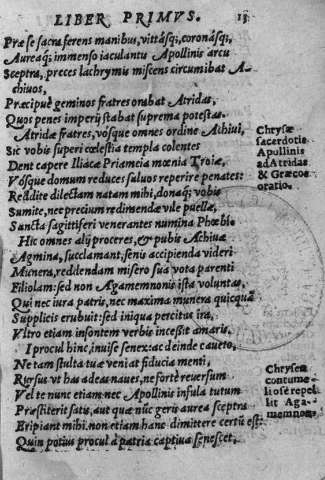 LIBER PRIMVS. 13
Præ se sacra ferens manibus, vittásq;, coronásq;,
Aureaq; immenso iaculantis Apollinis arcu
Sceptra, preces lachrymis miscens circumibat A-
chiuos,
Præcipuè geminos fratres orabat Atridas,
Quos penes imperij stabat suprema potestas.
Atridæ fratres, vósque omnes ordine Achiui,
Sic vobis superi cœlestia templa colentes
Dent capere Iliacæ Priameia mœnia Troiæ,
Vósque domum reduces saluos reperire penates:
Reddite dilectam natam mihi, donaq; vobis
Sumite, nec precium redimendæ vile puellæ,
Sancta sagittiferi venerantes numina Phœbi.
Chrysæ
sacerdotis
Apollinis
ad Atridas
& Græcos
oratio.
Hic omnes alij proceres, & pubis Achiuæ
Agmina, succlamant, senis accipienda videri
Munera, reddendam misero sua vota parenti
Filiolam: sed non Agamemnonis ista voluntas,
Qui nec iura patris, nec maxima munera quicquã
Supplicis erubuit: sed iniqua percitus ira,
Vltro etiam insontem verbis incessit amaris.
I procul hinc, inuise senex: ac deinde caueto,
Ne tam stulta tuæ veniat fiducia menti,
Rursus vt has adeas naues, ne fortè reuersum
Vel te nunc etiam nec Apollinis insula tutum
Præstiterit satis, aut quæ nũc geris aurea sceptra
Eripiant mihi. non etiam hanc dimittere certũ est:
Quin potius procul à patria captiua senescet,
Chrysen
contume-
liosè repel
lit Aga-
memnon.